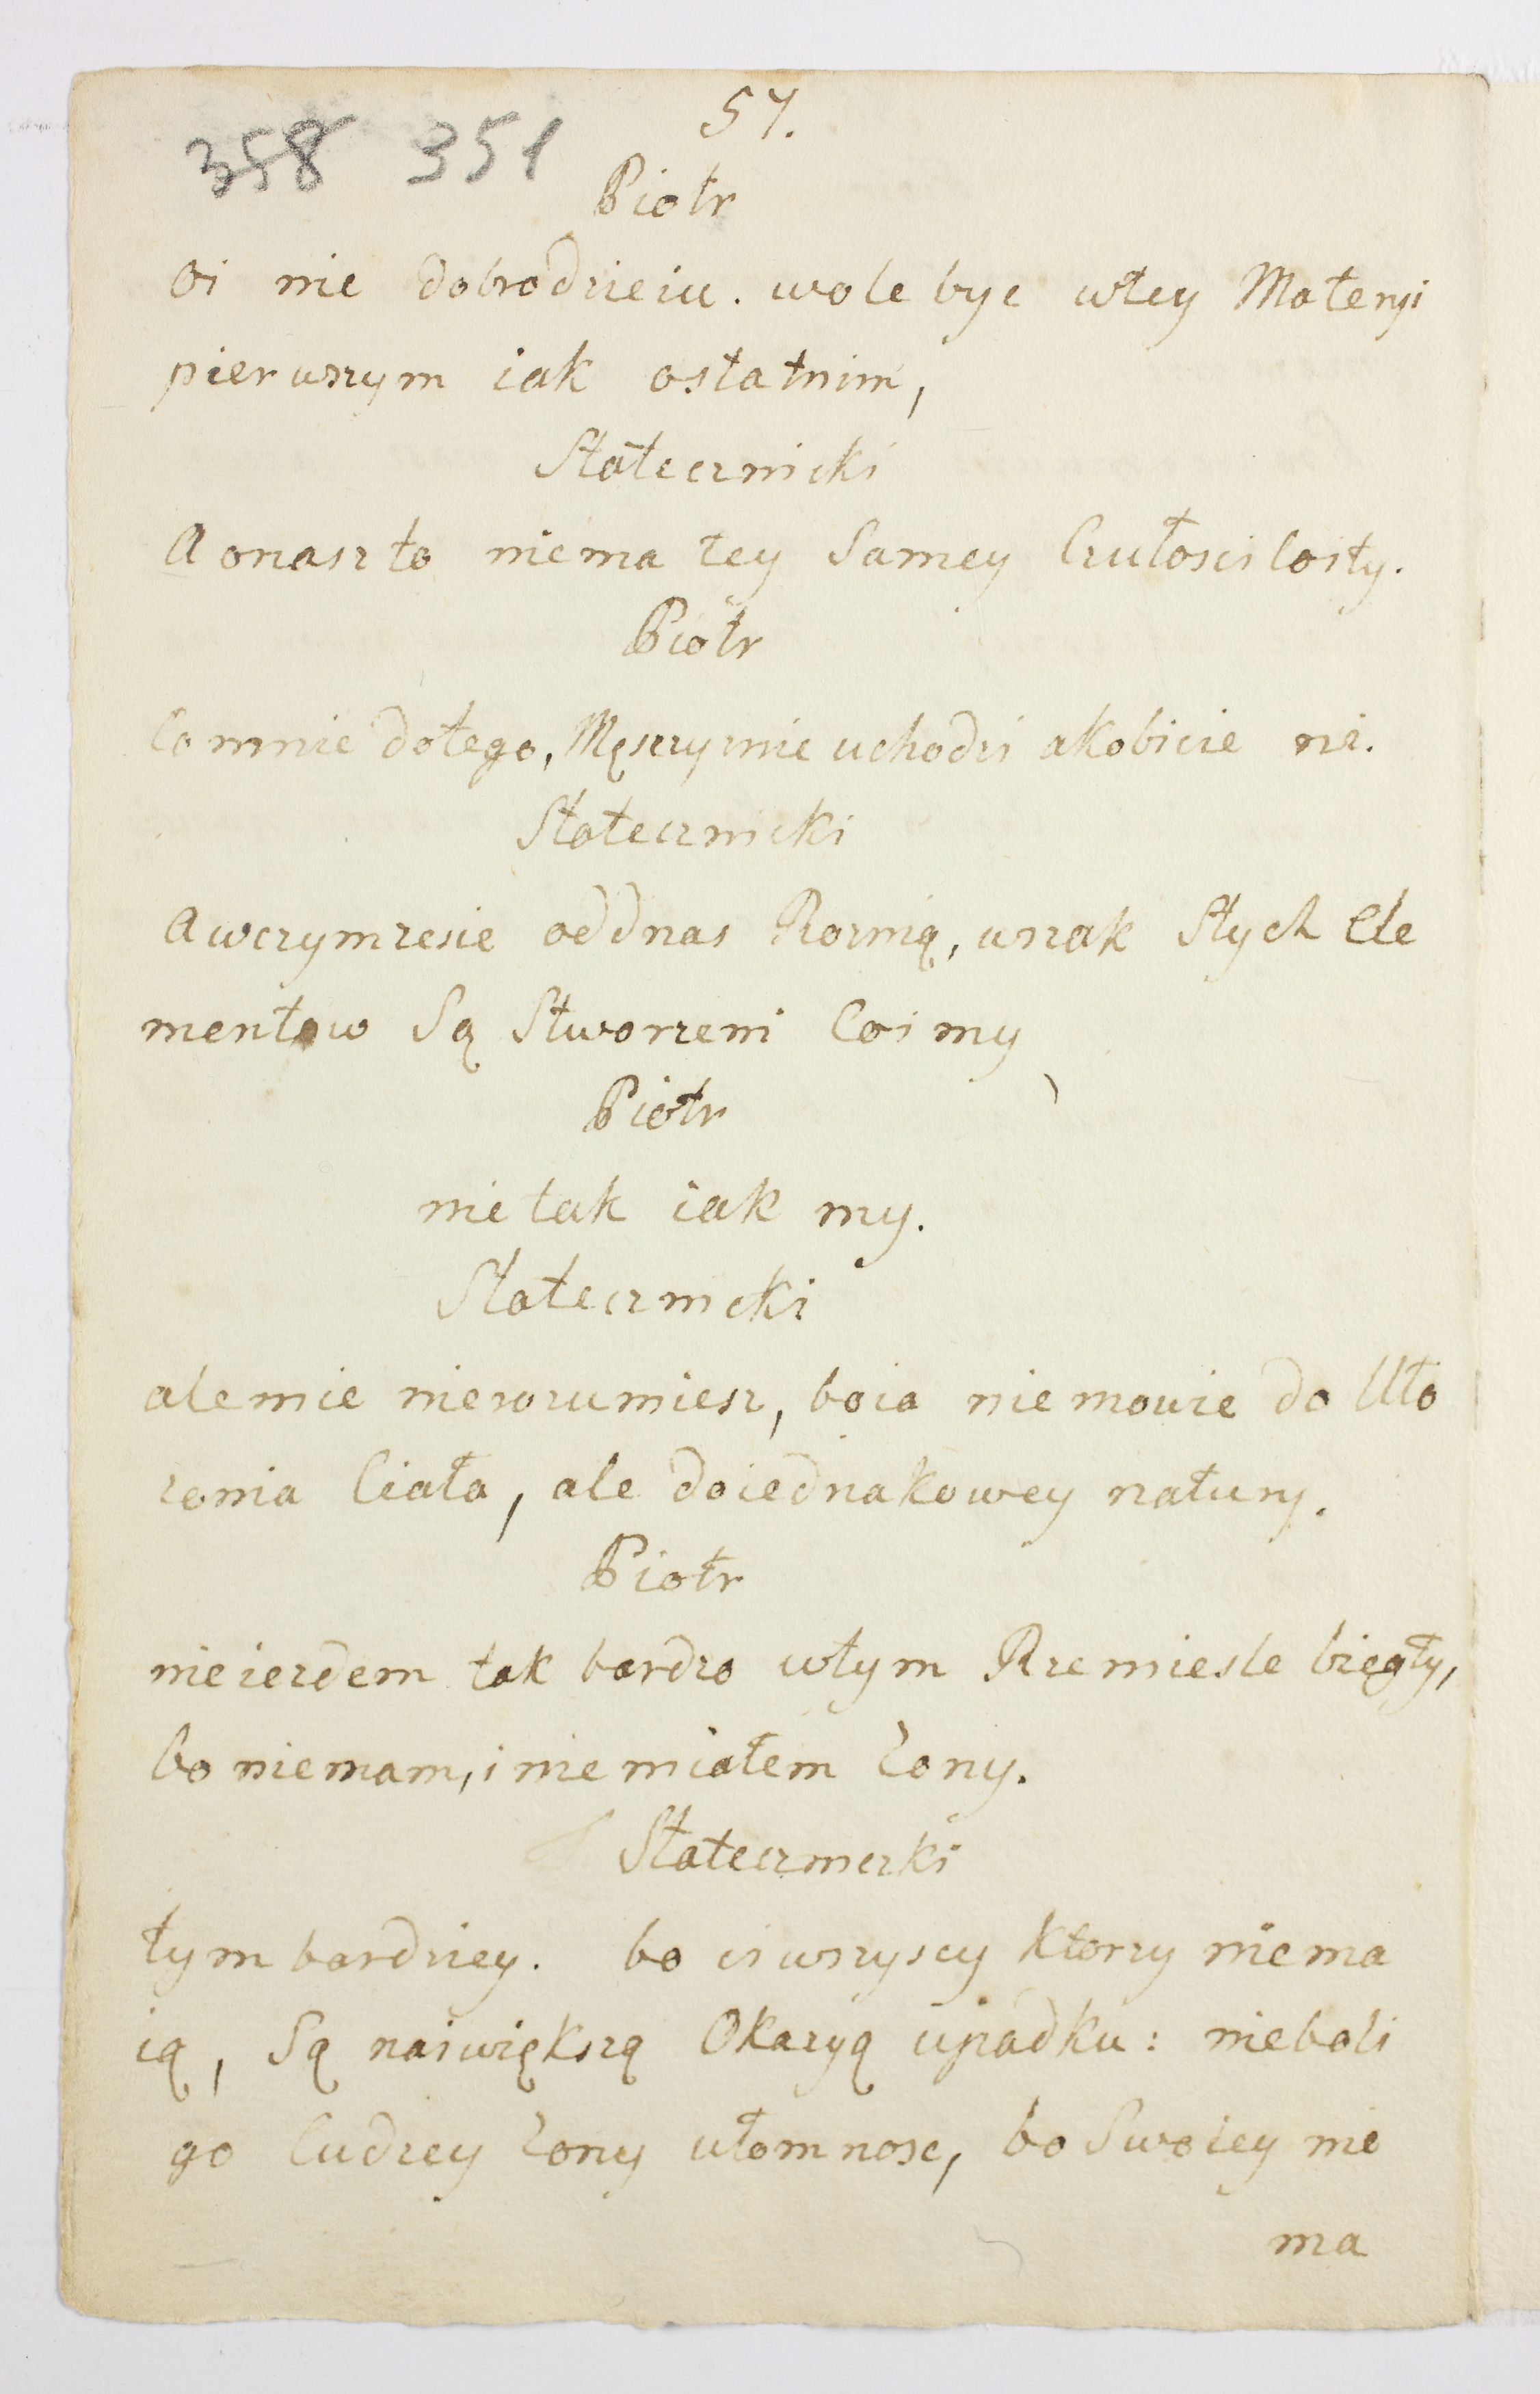 57.
358 351
Piotr
Oi nie dobrodzieiu. wole byc wtey Materyi
pierwszym iak ostatnim,
Statecznicki
A onaszto niema tey Samey Czułosci Coity.
Piotr
Co mnie dotego, Męsczyznie uchodzi akobicie nie.
Statecznicki
A wczymzesie oddnas Roznią, wszak Stych Ele
mentow Są Stworzeni Coi my
Piotr
nie tak iak my.
Statecznicki
ale mie nierozumiesz, boia nie mowie do Uło
zenia Ciała, ale doiednakowey natury.
Piotr
nieiezdem tak bardzo wtym Rzemiesle biegły,
bo niemam, i nie miałem Zony.
Statecznicki
tym bardziey. bo ci wszyscy Ktorzy niema
ią, Są naiwiększą Okazyą upadku: nieboli
go Cudzey Zony ułomnosc, bo Swoiey nie
ma